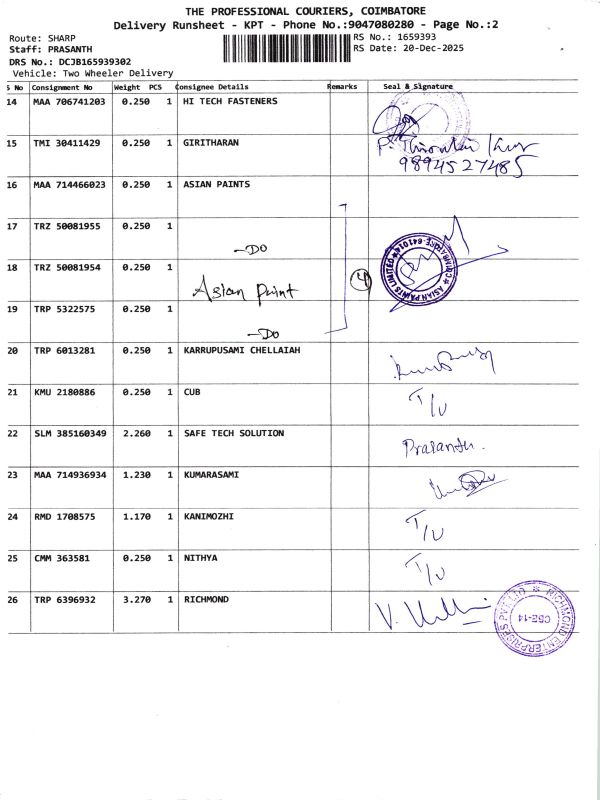 THE PROFESSIONAL COURIERS, COIMBATORE
Delivery Runsheet - KPT - Phone No.:9047080280 - Page No.:2
Route: SHARP RS No.: 1659393
Staff: PRASANTH RS Date: 20-Dec-2025
DRS No.: DCJB165939302
Vehicle: Two Wheeler Delivery
S No Consignment No Weight PCS Consignee Details Remarks Seal & Signature
14 MAA 706741203 0.250 1 HI TECH FASTENERS
15 TMI 30411429 0.250 1 GIRITHARAN
9894527485
16 MAA 714466023 0.250 1 ASIAN PAINTS
17 TRZ 50081955 0.250 1
-DO
18 TRZ 50081954 0.250 1
Asian Paint
4
ASIAN PAINTS LIMITED COIMBATORE-641014
19 TRP 5322575 0.250 1
-DO
20 TRP 6013281 0.250 1 KARRUPUSAMI CHELLAIAH
21 KMU 2180886 0.250 1 CUB
T/U
22 SLM 385160349 2.260 1 SAFE TECH SOLUTION
Prasanth.
23 MAA 714936934 1.230 1 KUMARASAMI
24 RMD 1708575 1.170 1 KANIMOZHI
T/U
25 CMM 363581 0.250 1 NITHYA
T/U
26 TRP 6396932 3.270 1 RICHMOND
RICHMOND ENTERPRISES PVT LTD
CBE-14